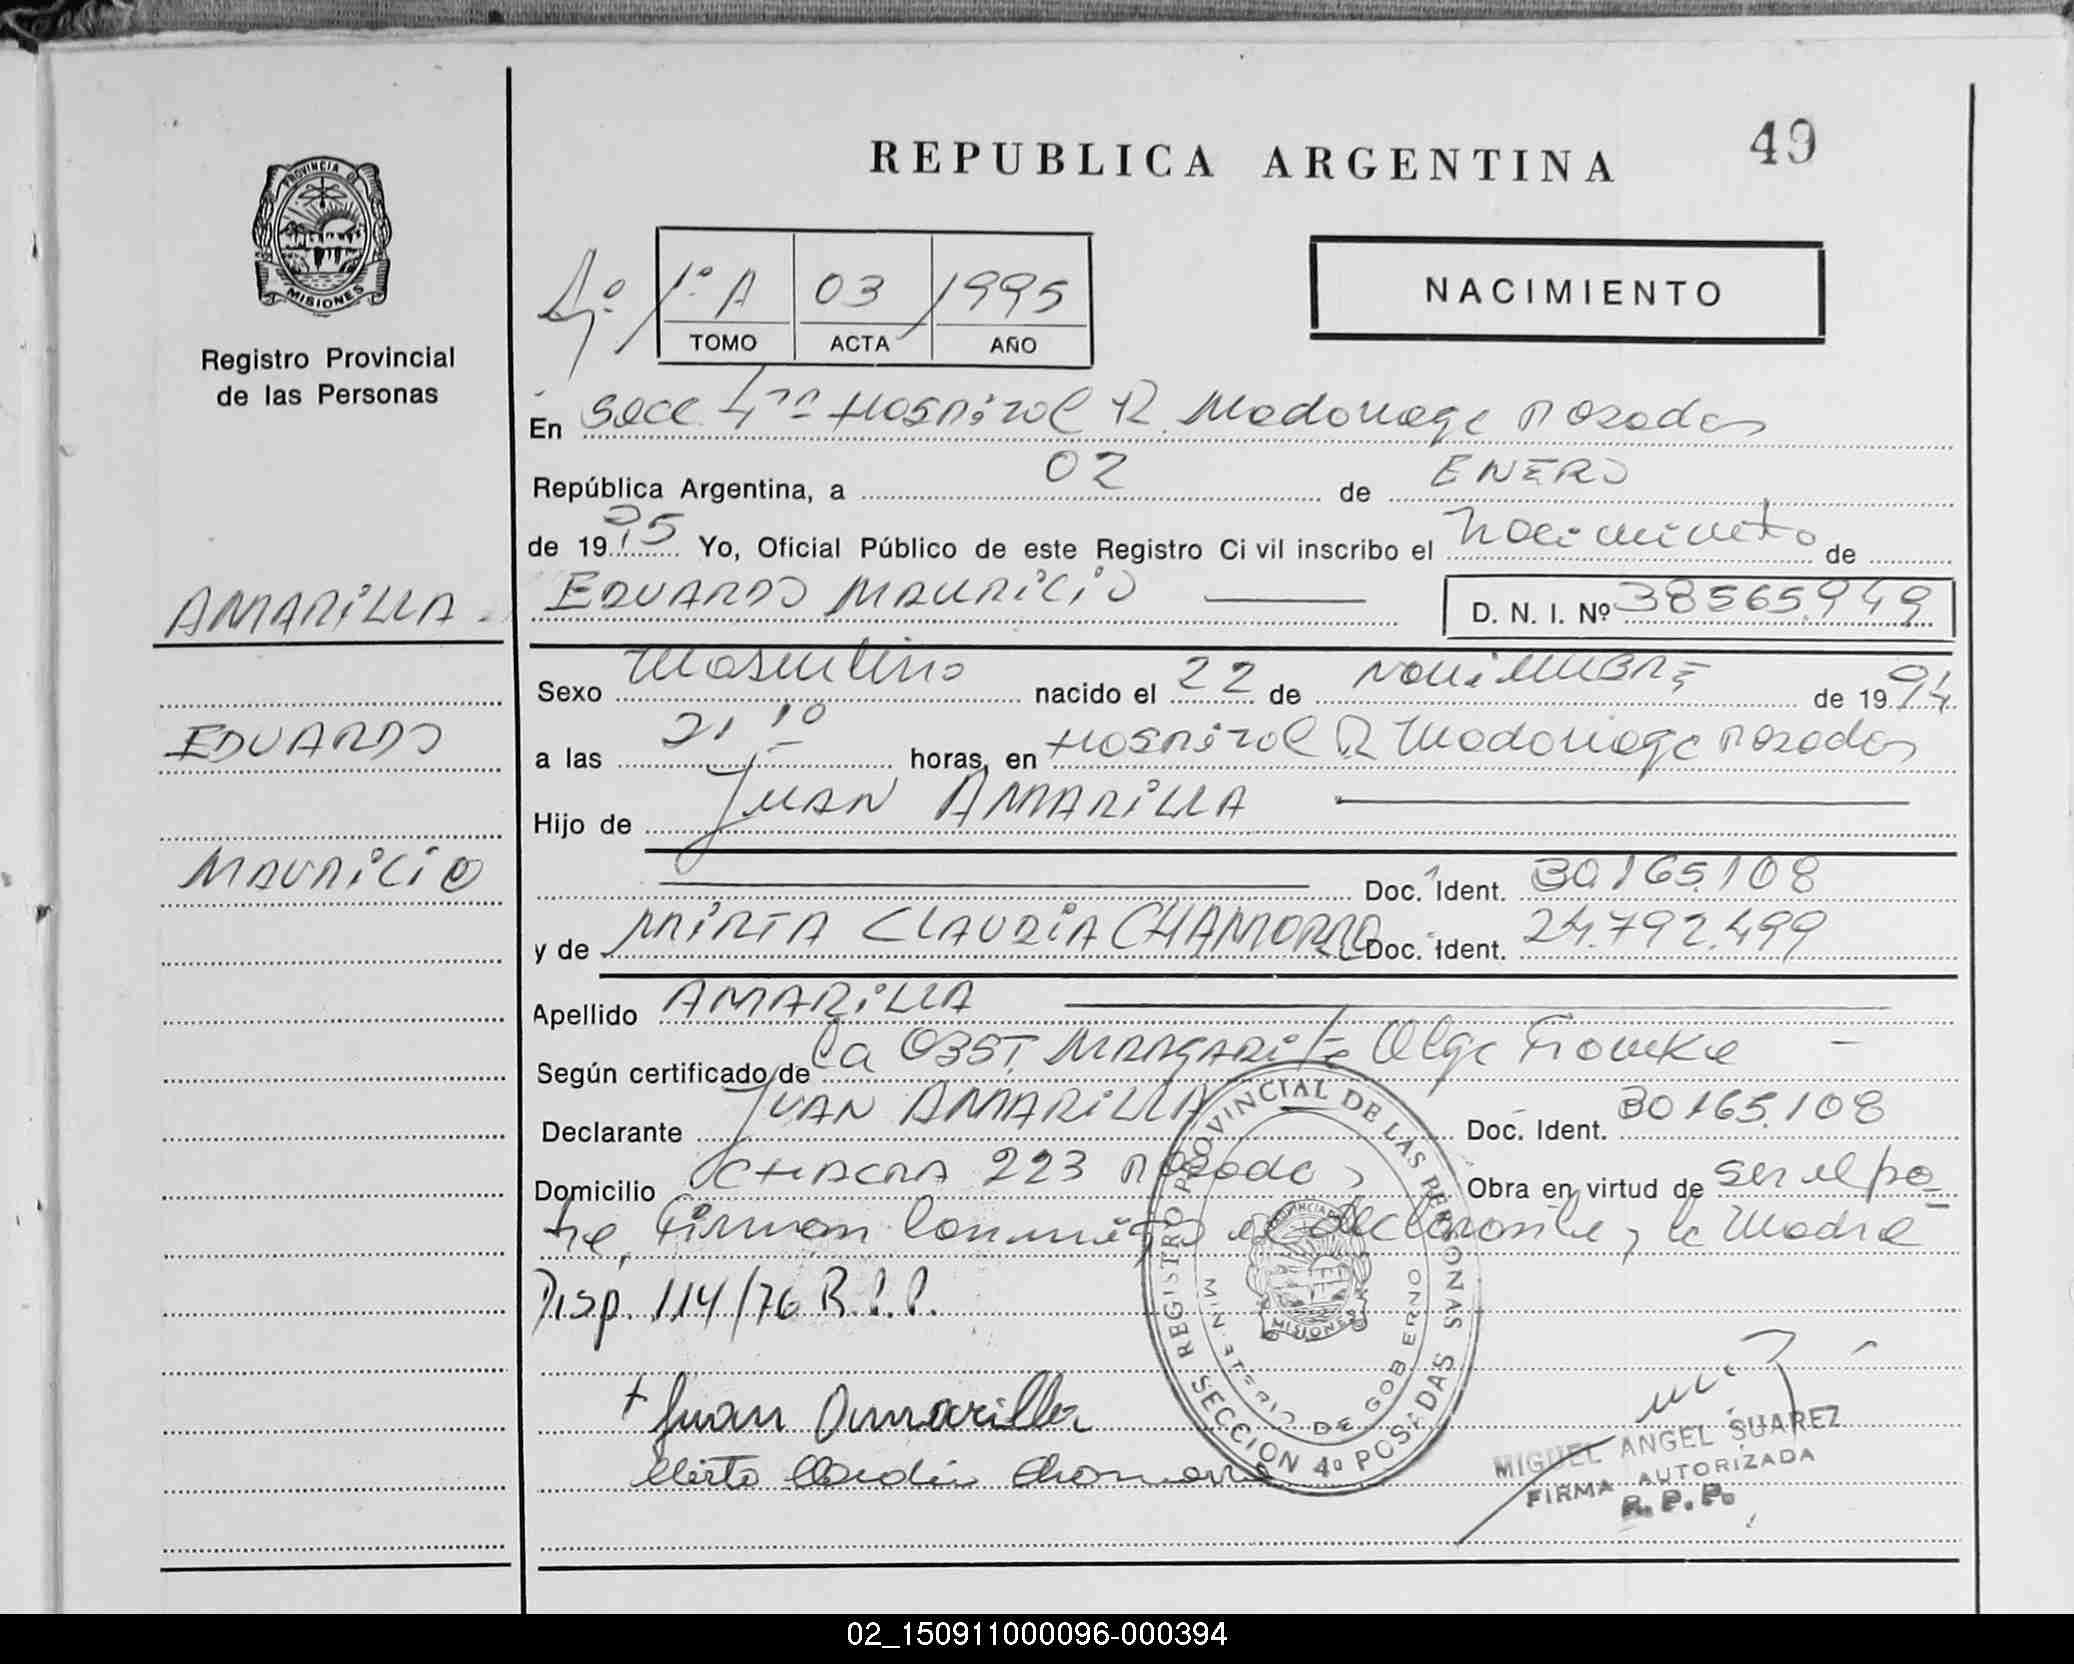 REPUBLICA ARGENTINA
49
PROVINCIA DE
MISIONES
Registro Provincial
de las Personas
4º / 1º A 03 / 1995
TOMO ACTA AÑO
NACIMIENTO
En Secc 4ta Hospital R. Madariaga Posadas
República Argentina, a 02 de ENERO
de 1995 Yo, Oficial Público de este Registro Civil inscribo el Nacimiento de
AMARILLA
EDUARDO MAURICIO
D. N. I. Nº 38565.949
Sexo Masculino nacido el 22 de NOVIEMBRE de 1994
EDUARDO
a las 21 10 horas, en Hospital R Madariaga Posadas
Hijo de JUAN AMARILLA
MAURICIO
Doc. Ident. 30.165.108
y de MIRTA CLAUDIA CHAMORRO Doc. Ident. 24.792.499
Apellido AMARILLA
Según certificado de la OBST. MARGARITA Olga
Declarante JUAN AMARILLA Doc. Ident. 30.165.108
Domicilio CHACRA 223 Posadas Obra en virtud de ser el pa
dre, Firman conmigo el declarante y la Madre
Disp. 114/76 R.P.P.
Juan Amarilla
Mirta Claudia Chamorro
REGISTRO PROVINCIAL DE LAS PERSONAS
MINISTERIO DE GOBIERNO
MISIONES
SECCION 4º POSADAS
MIGUEL ANGEL SUAREZ
FIRMA AUTORIZADA
R.P.P.
02_150911000096-000394